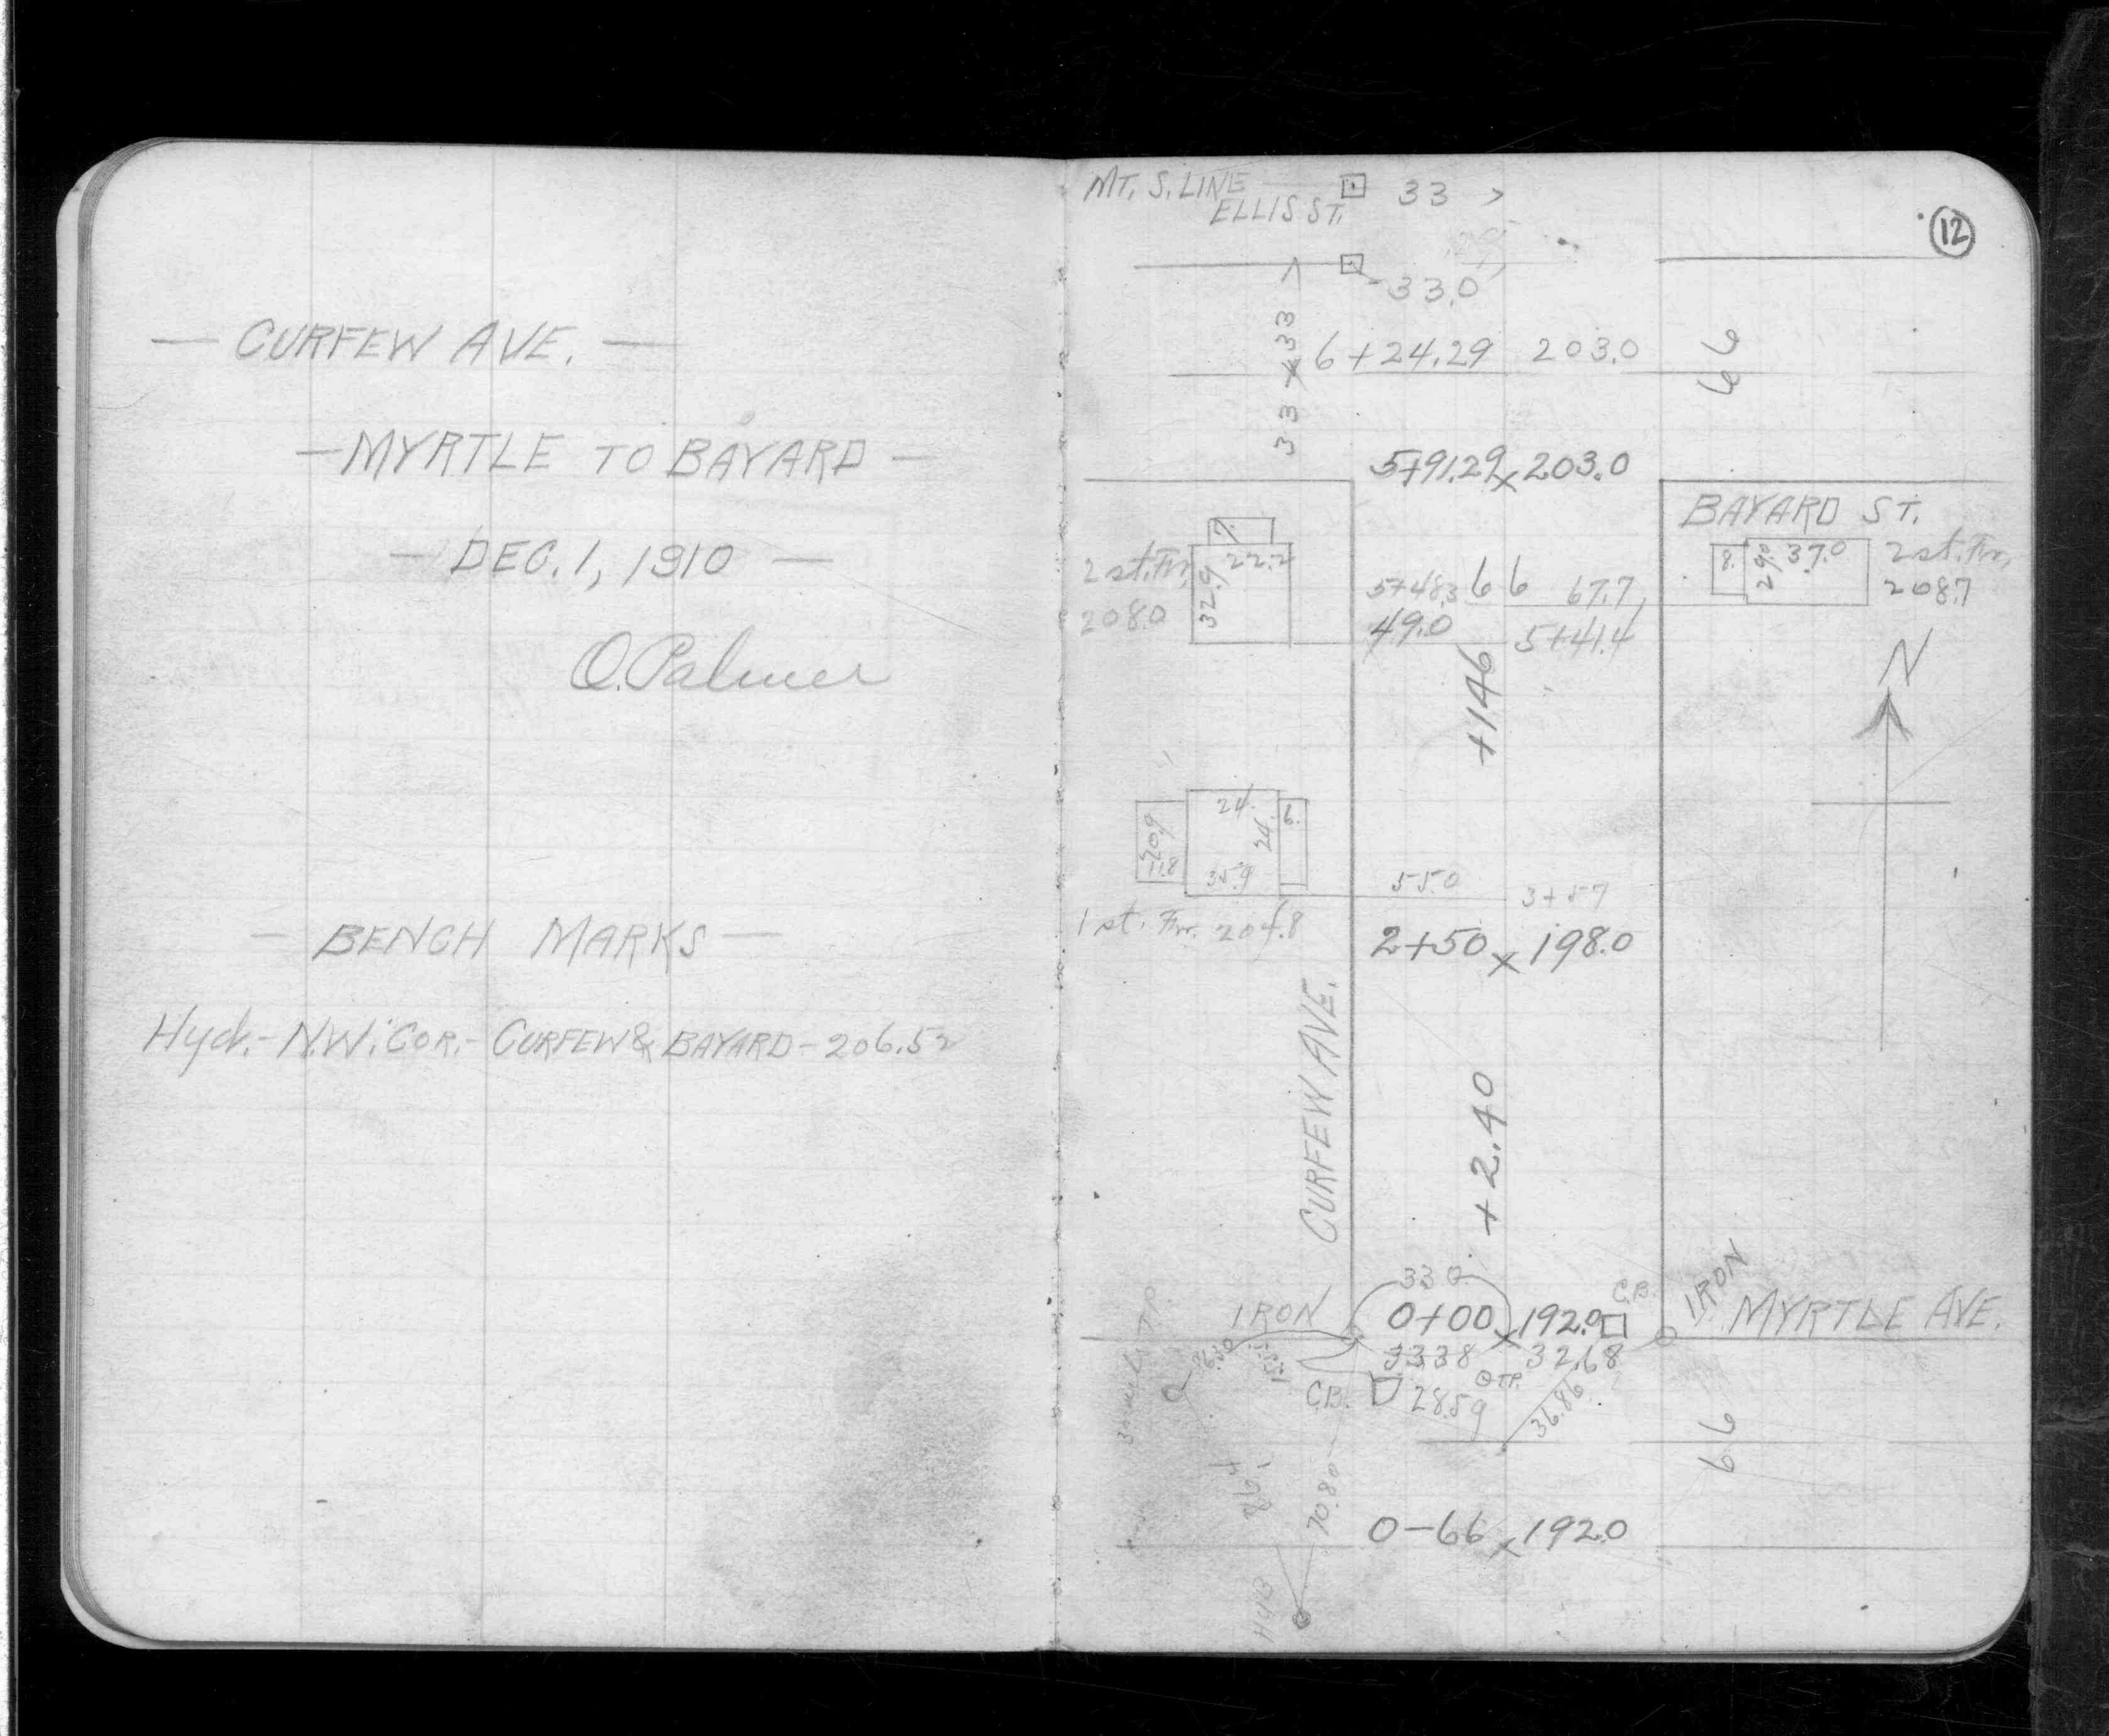 — CURFEW AVE. —
— MYRTLE TO BAYARD —
— DEC. 1, 1910 —
O. Palmer
— BENCH MARKS —
Hyd. - N.W. COR. - CURFEW & BAYARD - 206.52
12
MT. S. LINE 33
ELLIS ST.
33.0
33 33
6+24.29 203.0
66
5+91.29 x 203.0
BAYARD ST.
7.
2 st. Fr. 32.9 22.2
208.0
5+48.3 66 67.7
8. 29.0 37.0 2 st. Fr.
208.7
49.0 5+41.4
N
+1.46
24. 6.
20.9 24.
11.8 35.9
55.0 3+57
1 st. Fr. 204.8
2+50 x 198.0
CURFEW AVE.
+2.40
33.0
C.B.
IRON 0+00 x 192.0 IRON MYRTLE AVE.
33.38 32.68
T.P.
C.B. 28.59 36.86
66
70.80
0-66 x 192.0
HUB